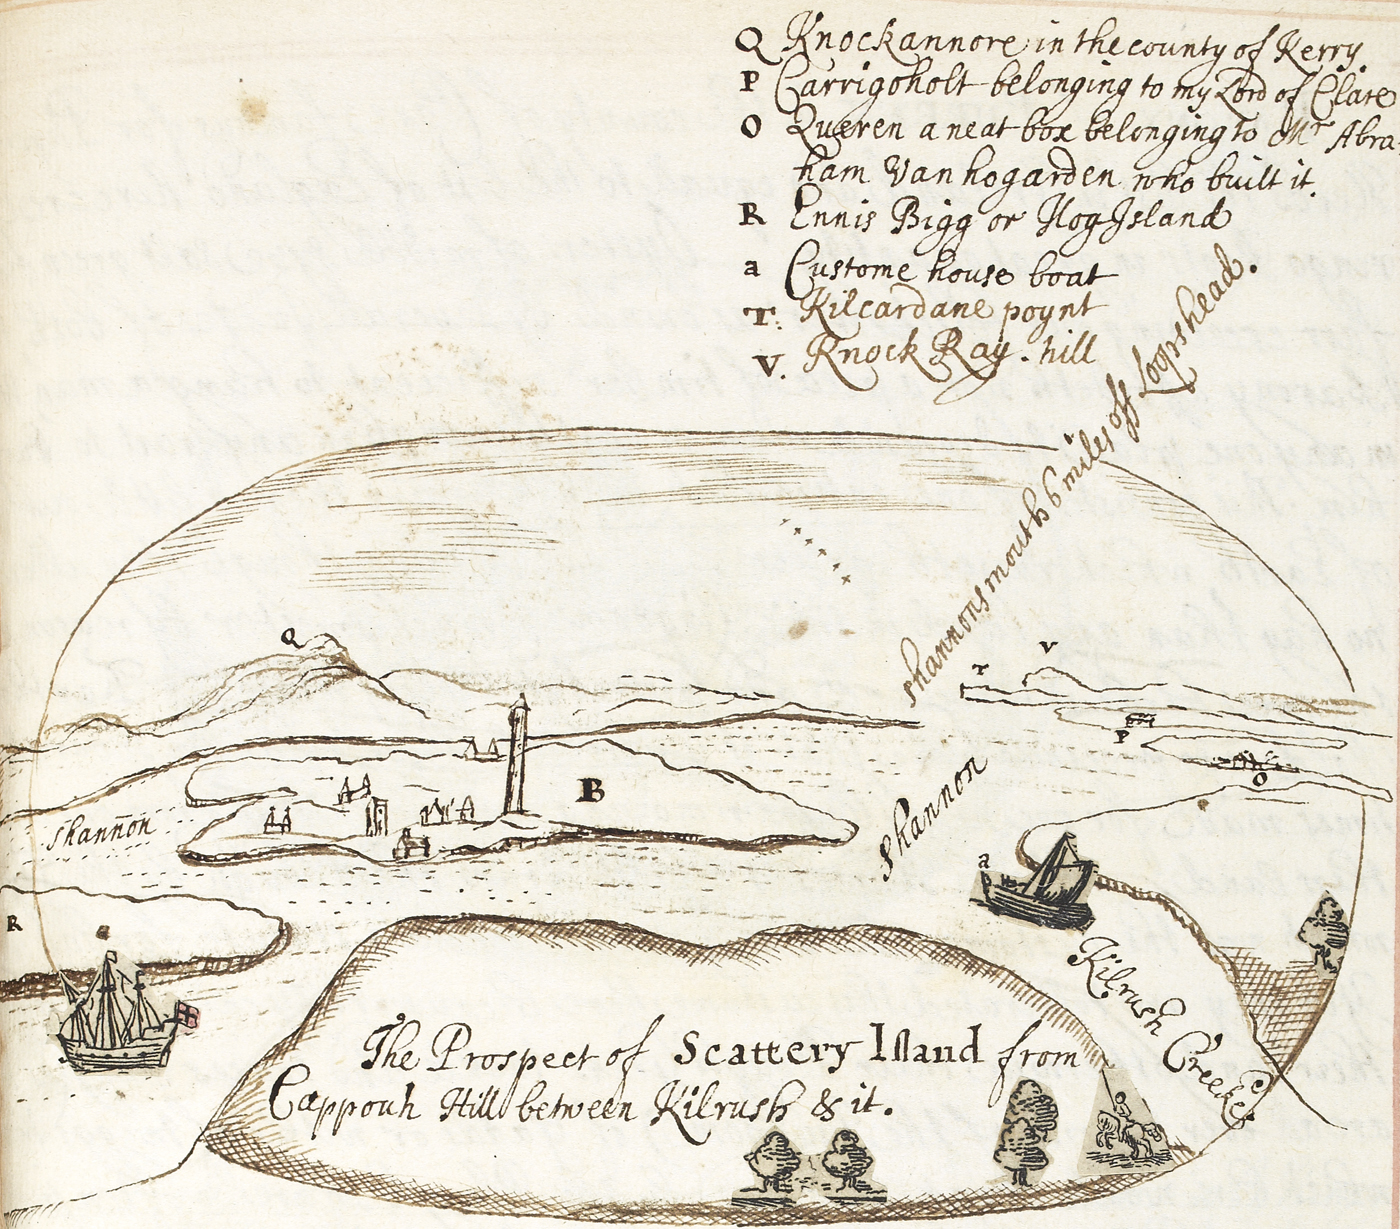 Q Knockannore in the county of Kerry.
P Carrigoholt belonging to my Lord of Clare
O Queren a neat box belonging to Mr Abra-
ham Vanhogarden who built it.
R Ennis Bigg or Hog Island
a Custome house boat
T: Kilcardane poynt
V. Knock Ray. hill
shannons mouth 6 miles off Loopshead.
Q
T
V
P
O
B
shannon
shannon
a
R
Kilrush Creeke
The Prospect of Scattery Island from
Cappouh Hill between Kilrush & it.